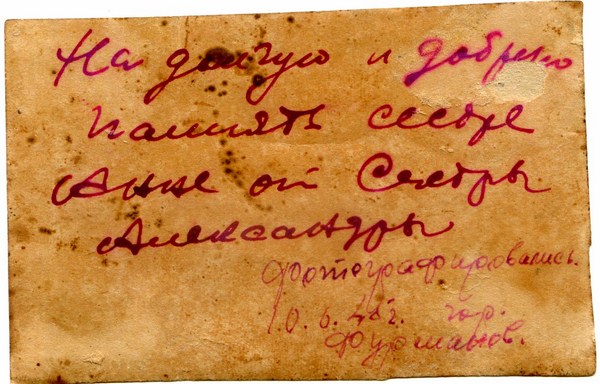 На долгую и добрую
память сестре
Анне от Сестры
Александры
Фотографировались.
10. 6. гор.
Фурманов.